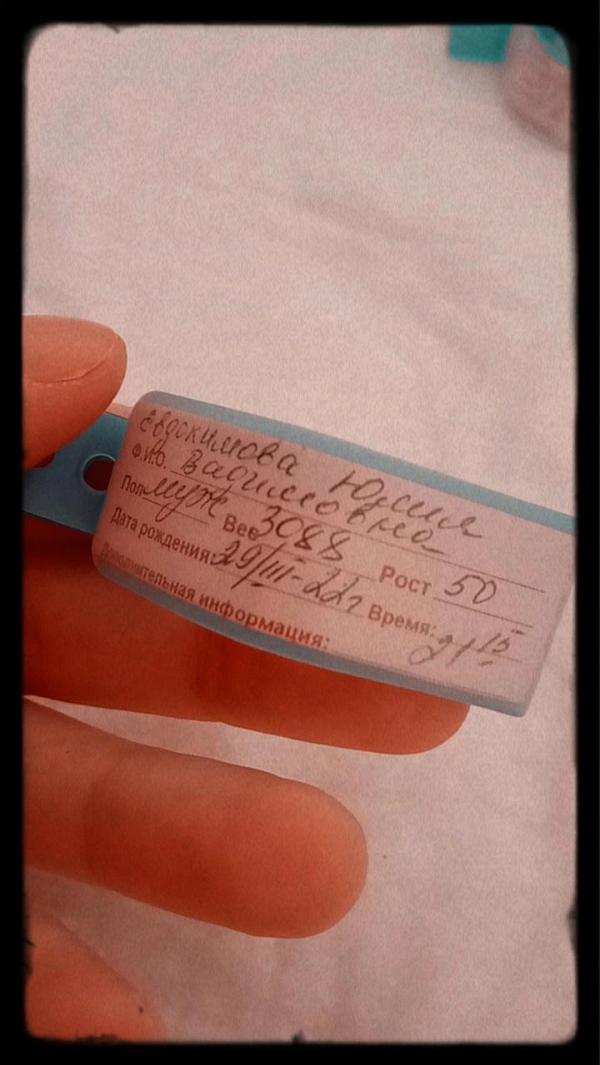 Евдокимова Юлия
Ф.И.О. Вадимовна
Пол муж Вес 3088 Рост 50
Дата рождения: 29/III-22г Время: 21 15
Дополнительная информация: